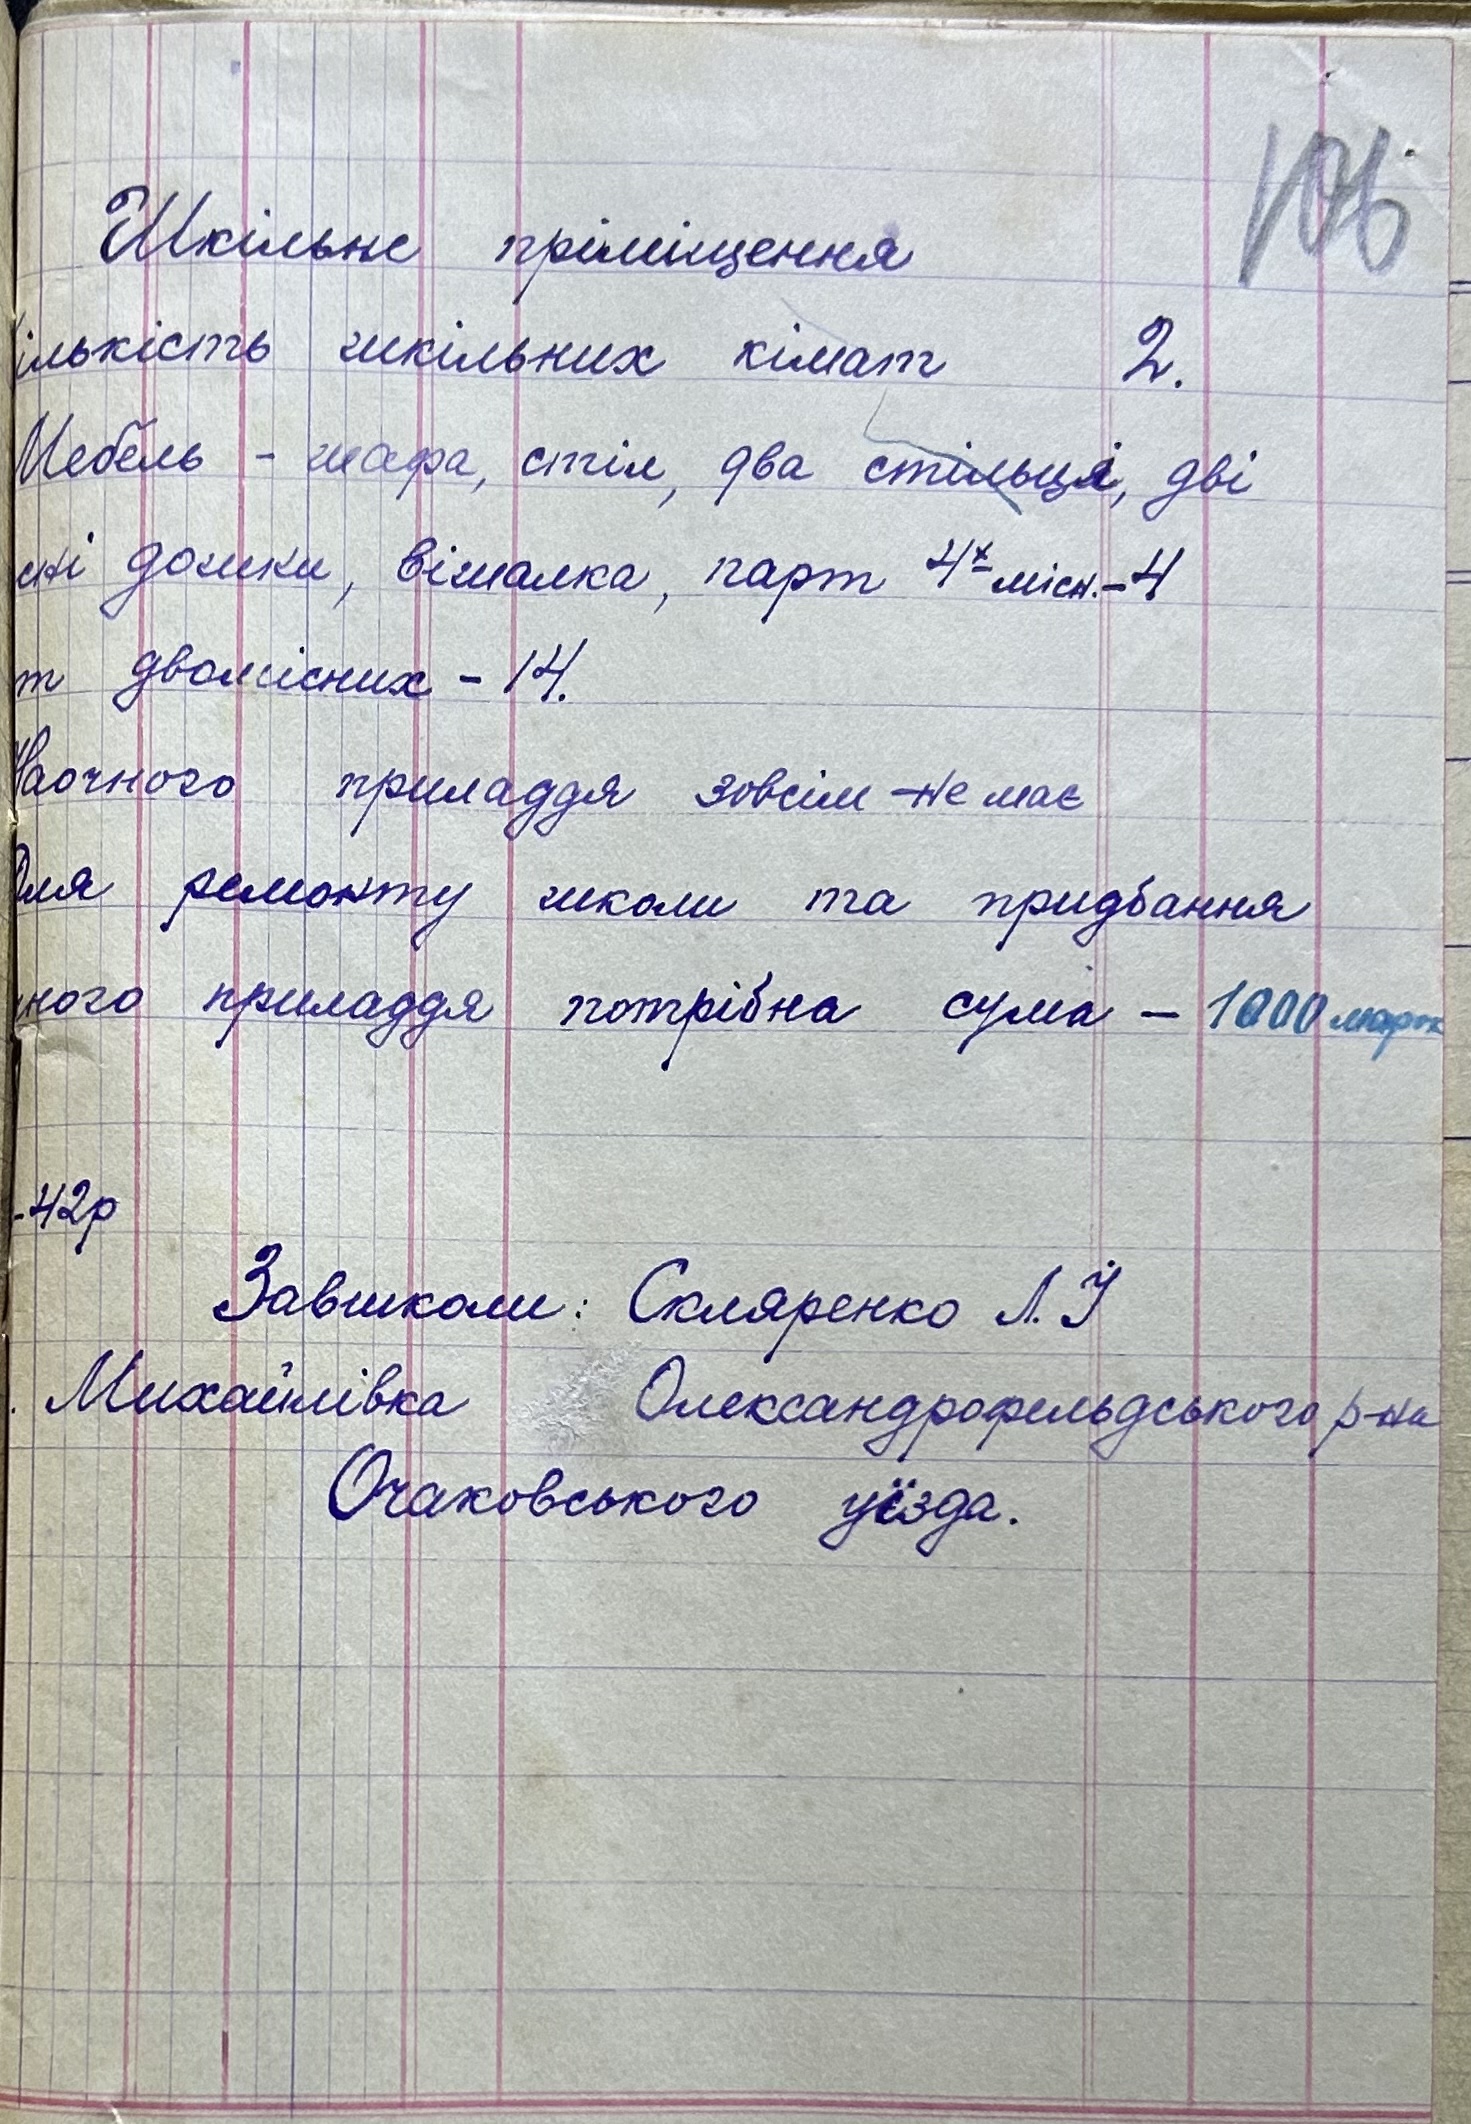 106
Шкільне пріміщення
ількість шкільних кімат 2.
Мебель - шафа, стіл, два стільці, дві
сні дошки, вішалка, парт 4х місн. - 4
т двомісних - 14.
Наочного приладдя зовсім не має
Для ремонту школи та придбання
ного приладдя потрібна сума - 1000 марок
-42р
Завшколи: Скляренко Л. І
. Михайлівка Олександрофельдського р-на
Очаковського уїзда.